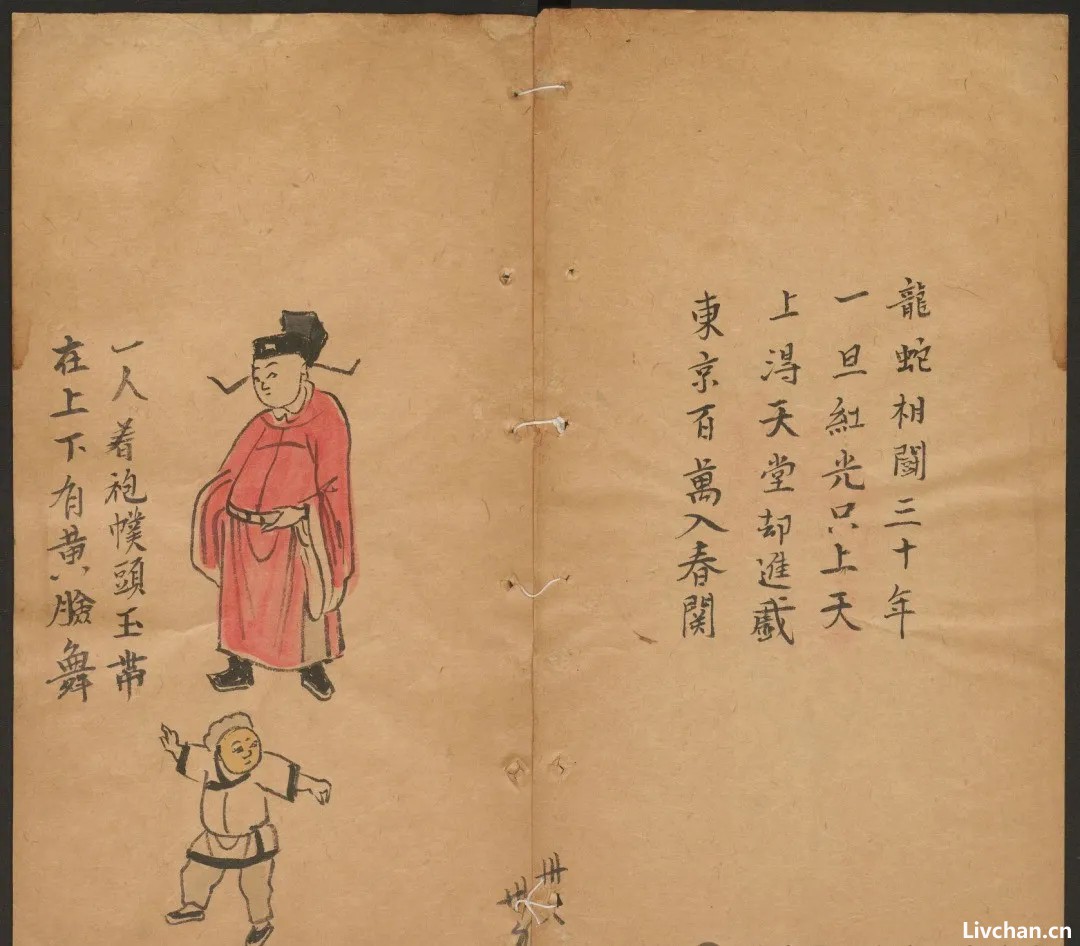 龍蛇相鬪三十年
一旦紅光只上天
上淂天堂却進戯
東京百萬入春関
一人着袍幞頭玉帶
在上下有黄八臉舞
卅六
Livchan.cn